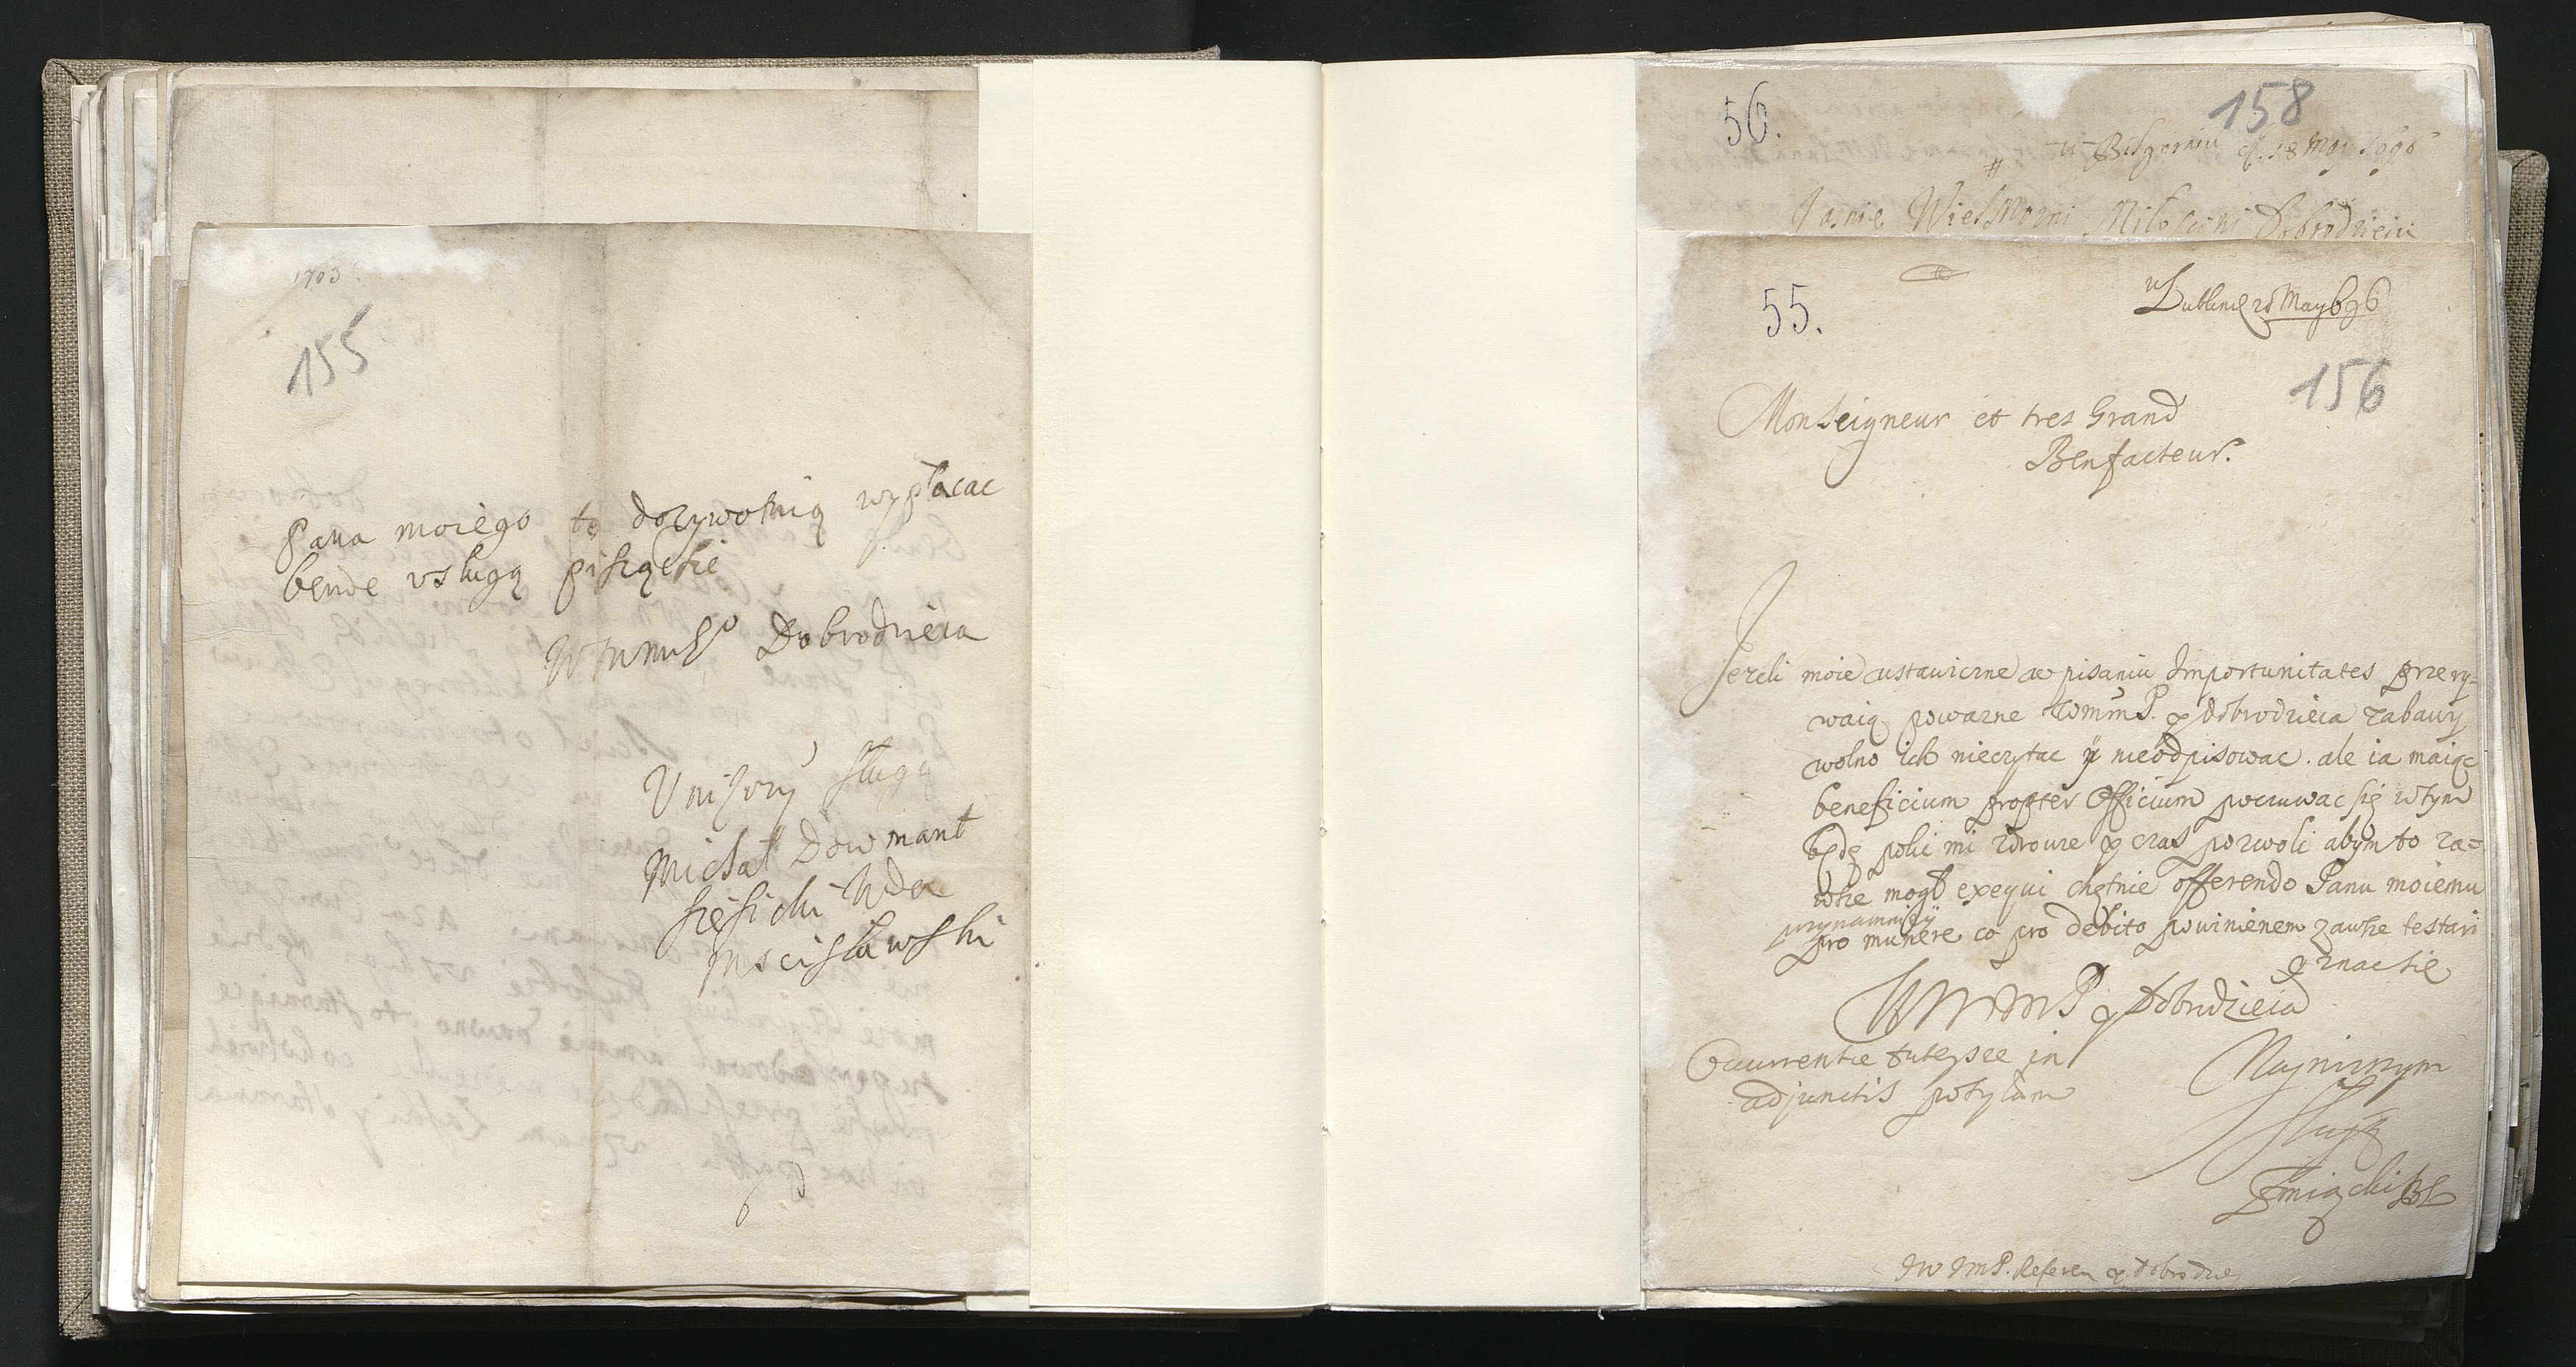 1703
155
Pana moiego tę dozywotnią wypłacac
bende usługą pisząc sie
Dobrodzieia
Unizony sługą
Michał Dowmant
Siesicki Wda
Mscisławski
56.
158
w Biłgoraiu d. 18 May 1696
Jasnie Wielmozni Miłosciwi Dobrodzieiu
55.
w Lublinie 28 May 696
156
Monseigneur et tres Grand
Benfacteur.
Jezeli moie ustawiczne w pisaniu Importunitates przery=
waią powazne WMMP. y Dobrodzieia zabawy
wolno ich nieczytac ÿ nieodpisowac. ale ia maiąc
beneficium propter Officium poczuwac się w tym
będę poki mi zdrowie y czas pozwoli abym to za=
wsze mogł exequi chętnie offerendo Panu moiemu
przynamniÿ
pro munere co pro debito powinienem zawsze testari
y znac sie
WMMP y Dobrodzieia
Occurrentie tuteysze in
adjunctis posyłam
Naynizszym
Sługą
JW JmP. Referen y Dobrodzie